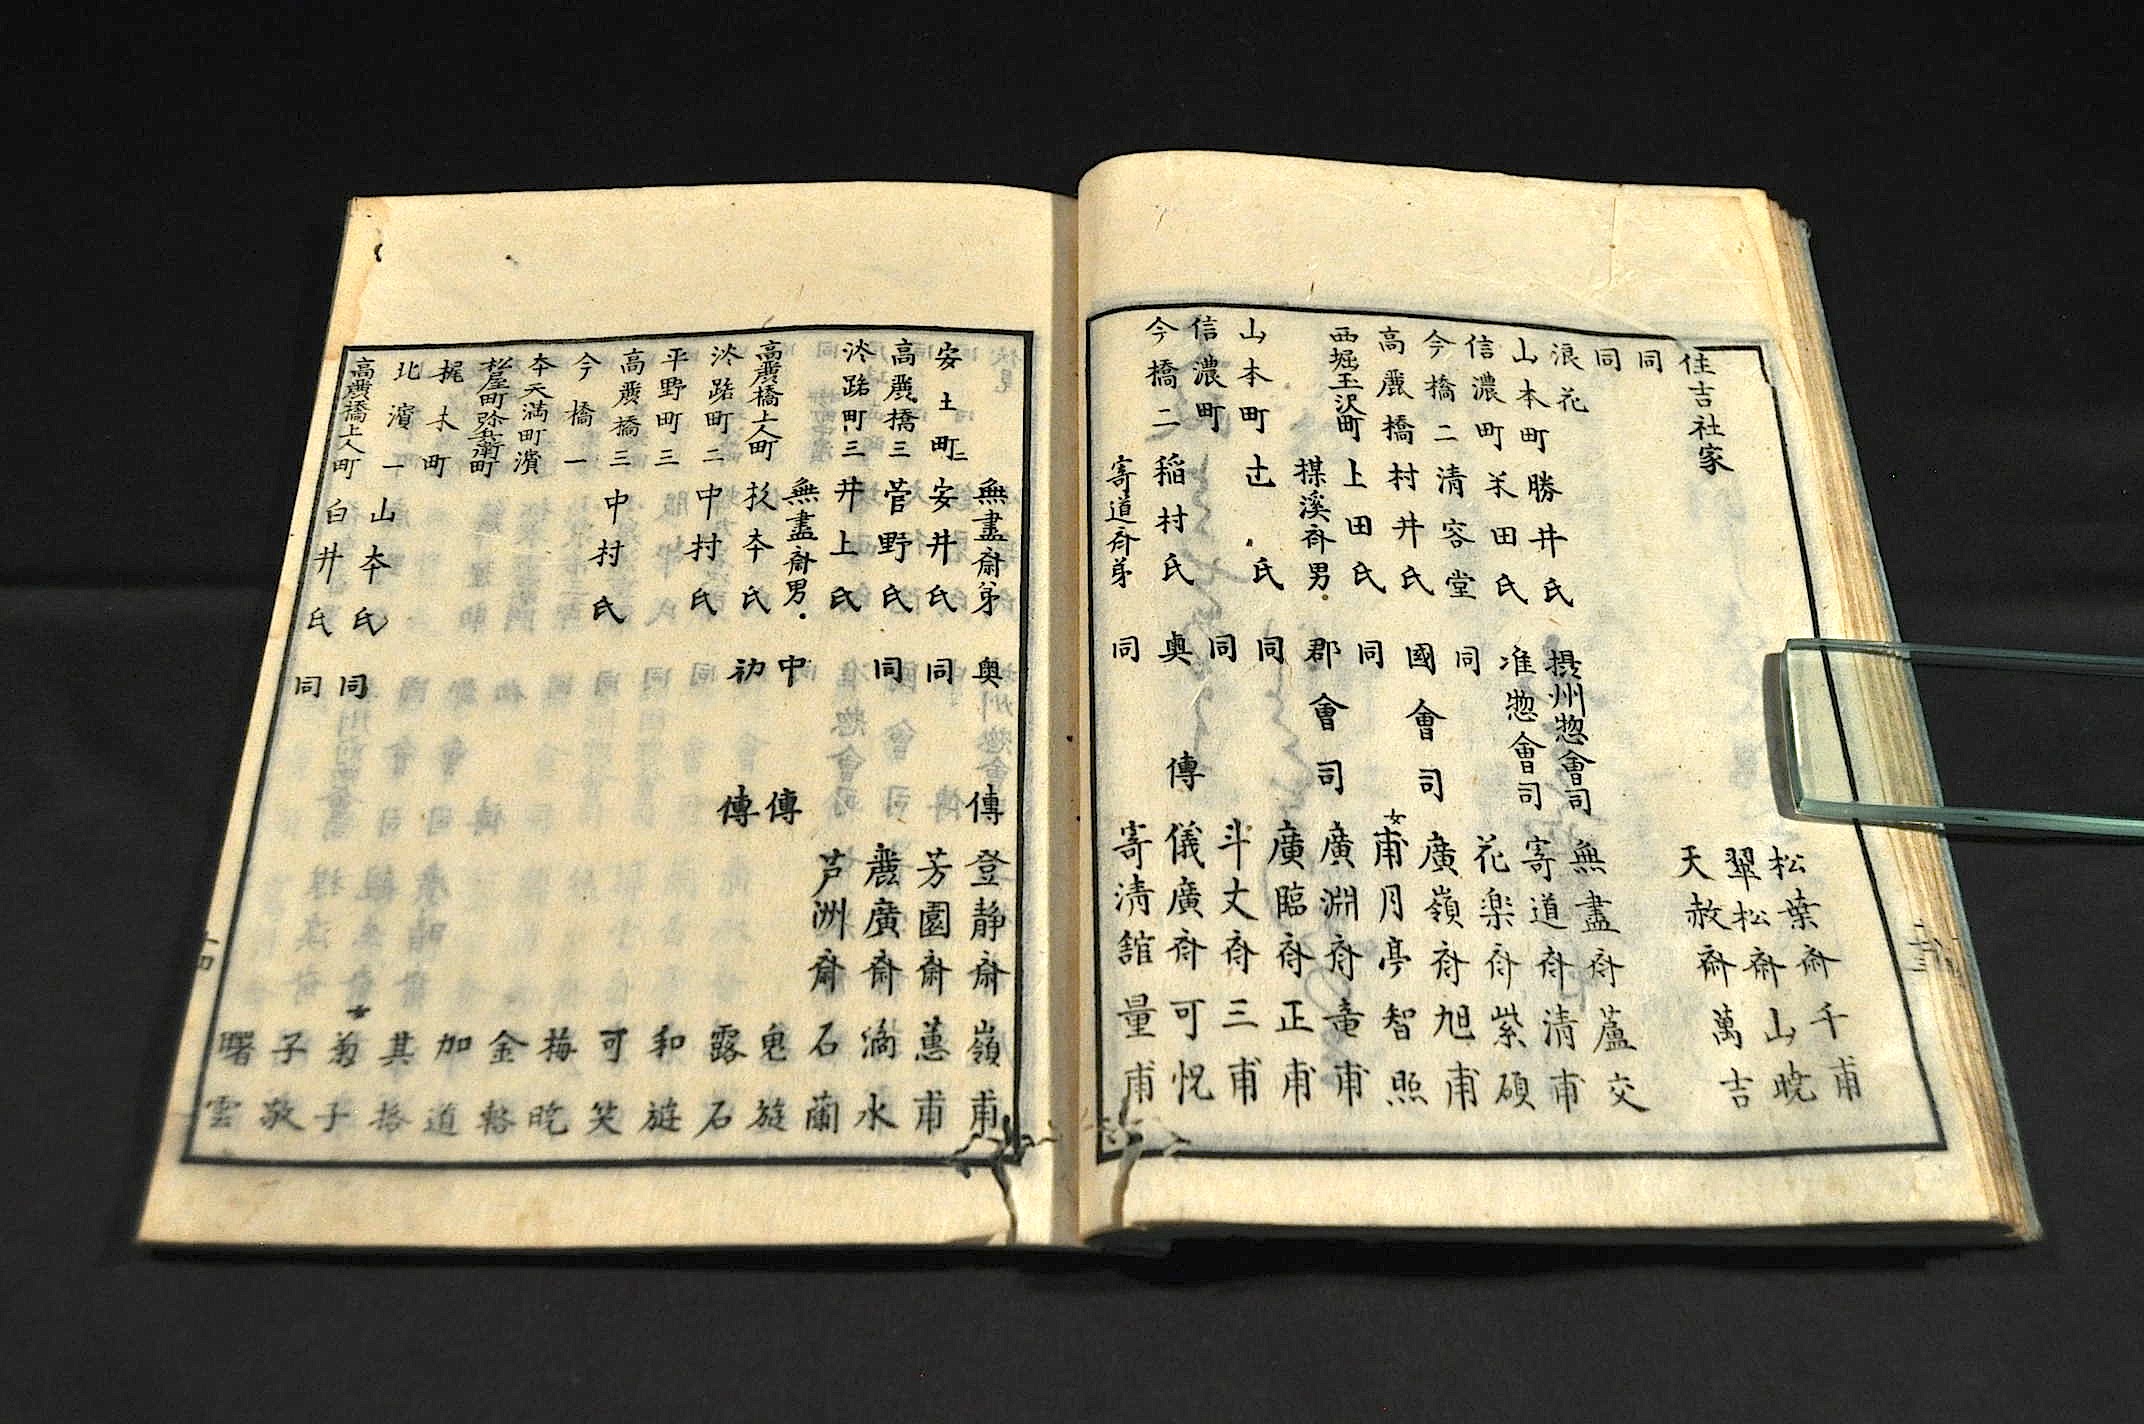 住吉社家 松葉斎 千甫
同 翠松斎 山暁
同 天赦斎 萬吉
浪花 勝井氏 摂州惣會司 無盡斎 蘆交
山本町 米田氏 准惣會司 寄道斎 清甫
信濃町 清容堂 同 花楽斎 紫碩
今橋二 村井氏 國會司 廣嶺斎 旭甫
高麗橋 上田氏 同 女 甫月亭 智照
西堀玉沢町 楳溪斎男 郡會司 廣淵斎 竜甫
同 廣臨斎 正甫
山本町 辻氏 同 斗丈斎 三甫
信濃町 稲村氏 奥傳 儀廣斎 可悦
今橋二 寄道斎弟 同 寄清舘 量甫
無盡斎弟 奥傳 登静斎 嶺甫
安土町二 安井氏 同 芳園斎 蕙甫
高麗橋三 菅野氏 同 麗廣斎 滴水
淡路町三 井上氏 芦洲斎 石蘭
無盡斎男 中傳 兎遊
高麗橋上人町 松本氏 初傳 露石
淡路町二 中村氏 和遊
平野町三 可笑
高麗橋三 中村氏 梅暁
今橋一 金輅
本天満町濱 加道
松屋町弥兵衛町 其
梶木町 女 菊子
北濱一 山本氏 同 子敬
高麗橋上人町 白井氏 同 曙雲